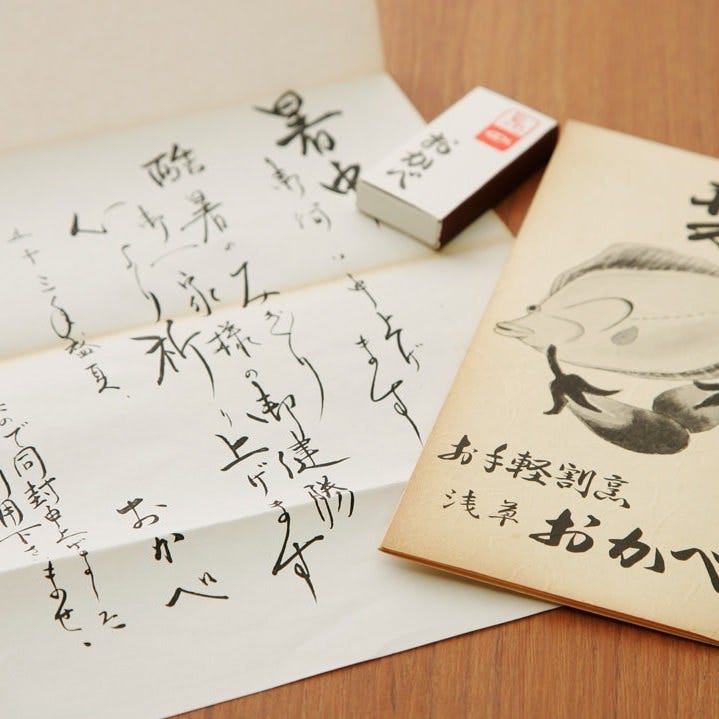 暑中
御伺い申上げます
酷暑のみぎり
御一家様の御健勝
心より祈り上げます
五十三年盛夏
おかべ
ので同封申上げました
利用下さいませ、
おかべ
お手軽割烹
浅草 おかべ